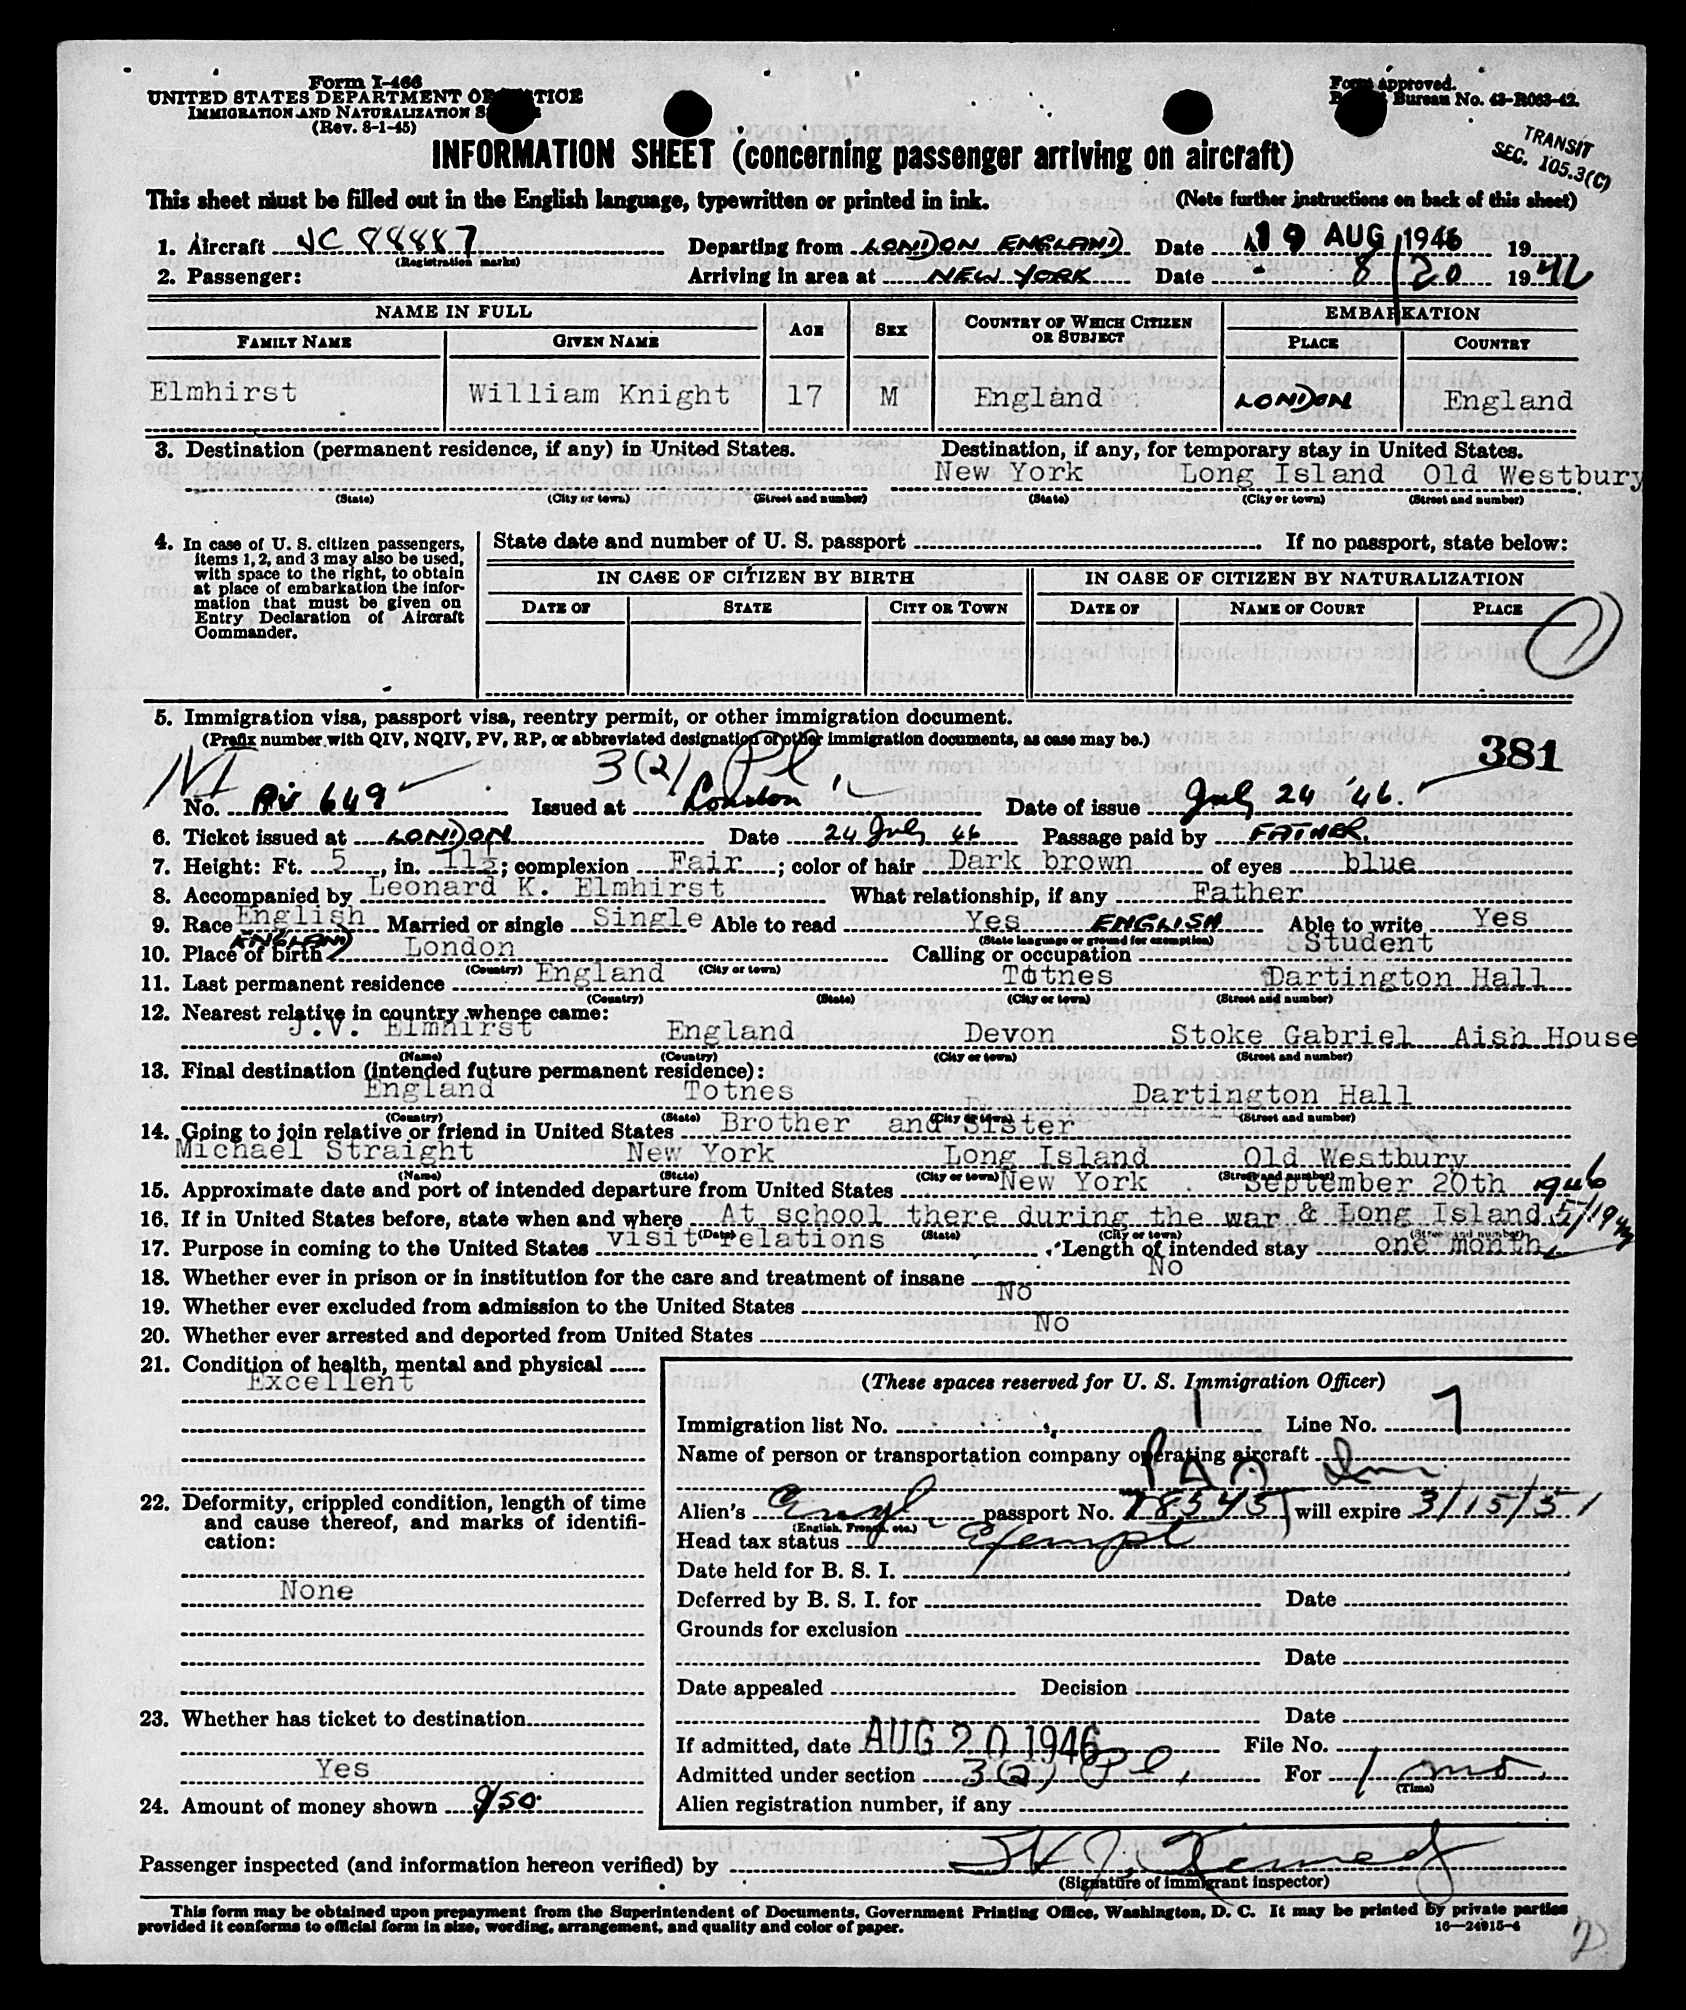 Form I-466
UNITED STATES DEPARTMENT OF JUSTICE
IMMIGRATION AND NATURALIZATION S
(Rev. 8-1-45)
Form approved.
Bureau No. 43-R063-42.
TRANSIT
SEC. 105.3(C)
INFORMATION SHEET (concerning passenger arriving on aircraft)
This sheet must be filled out in the English language, typewritten or printed in ink. (Note further instructions on back of this sheet)
1. Aircraft NC 88887 Departing from LONDON ENGLAND Date 19 AUG 1946 19
(Registration marks)
2. Passenger: Arriving in area at NEW YORK Date 8/20 1946
NAME IN FULL AGE SEX COUNTRY OF WHICH CITIZEN OR SUBJECT EMBARKATION
FAMILY NAME GIVEN NAME PLACE COUNTRY
Elmhirst William Knight 17 M England LONDON England
3. Destination (permanent residence, if any) in United States. Destination, if any, for temporary stay in United States.
New York Long Island Old Westbury
(State) (City or town) (Street and number) (State) (City or town) (Street and number)
4. In case of U. S. citizen passengers, items 1, 2, and 3 may also be used, with space to the right, to obtain at place of embarkation the information that must be given on Entry Declaration of Aircraft Commander.
State date and number of U. S. passport If no passport, state below:
IN CASE OF CITIZEN BY BIRTH IN CASE OF CITIZEN BY NATURALIZATION
DATE OF STATE CITY OR TOWN DATE OF NAME OF COURT PLACE
5. Immigration visa, passport visa, reentry permit, or other immigration document.
(Prefix number with QIV, NQIV, PV, RP, or abbreviated designation of other immigration documents, as case may be.)
381
3(2) Pl.
No. PV 649 Issued at London Date of issue July 24 '46.
6. Ticket issued at LONDON Date 24 July 46 Passage paid by FATHER.
7. Height: Ft. 5, in. 11½; complexion Fair; color of hair Dark brown of eyes blue
8. Accompanied by Leonard K. Elmhirst What relationship, if any Father
9. Race English Married or single Single Able to read Yes ENGLISH Able to write Yes
(State language or ground for exemption)
10. Place of birth ENGLAND London Calling or occupation Student
(Country) (City or town)
11. Last permanent residence England Totnes Dartington Hall
(Country) (State) (City or town) (Street and number)
12. Nearest relative in country whence came:
J.V. Elmhirst England Devon Stoke Gabriel Aish House
(Name) (Country) (City or town) (Street and number)
13. Final destination (intended future permanent residence):
England Totnes Dartington Hall
(Country) (State) (City or town) (Street and number)
14. Going to join relative or friend in United States Brother and Sister
Michael Straight New York Long Island Old Westbury
(Name) (State) (City or town) (Street and number)
15. Approximate date and port of intended departure from United States New York September 20th 1946
16. If in United States before, state when and where At school there during the war & Long Island
(Date) (State) (City or town) (Street and number)
17. Purpose in coming to the United States visit relations Length of intended stay one month
18. Whether ever in prison or in institution for the care and treatment of insane No
19. Whether ever excluded from admission to the United States No
20. Whether ever arrested and deported from United States No
21. Condition of health, mental and physical
Excellent
22. Deformity, crippled condition, length of time and cause thereof, and marks of identification:
None
23. Whether has ticket to destination
Yes
24. Amount of money shown $50.
(These spaces reserved for U. S. Immigration Officer)
Immigration list No. 1 Line No. 7
Name of person or transportation company operating aircraft
PAA
Alien's Engl. passport No. 78545 will expire 3/15/51
(English, French, etc.)
Head tax status Exempt
Date held for B. S. I.
Deferred by B. S. I. for Date
Grounds for exclusion
Date
Date appealed Decision
Date
If admitted, date AUG 20 1946 File No.
Admitted under section 3(2) Pl. For 1 mo.
(Time)
Alien registration number, if any
Passenger inspected (and information hereon verified) by
(Signature of immigrant inspector)
This form may be obtained upon prepayment from the Superintendent of Documents, Government Printing Office, Washington, D. C. It may be printed by private parties
provided it conforms to official form in size, wording, arrangement, and quality and color of paper. 16—24915-4
2